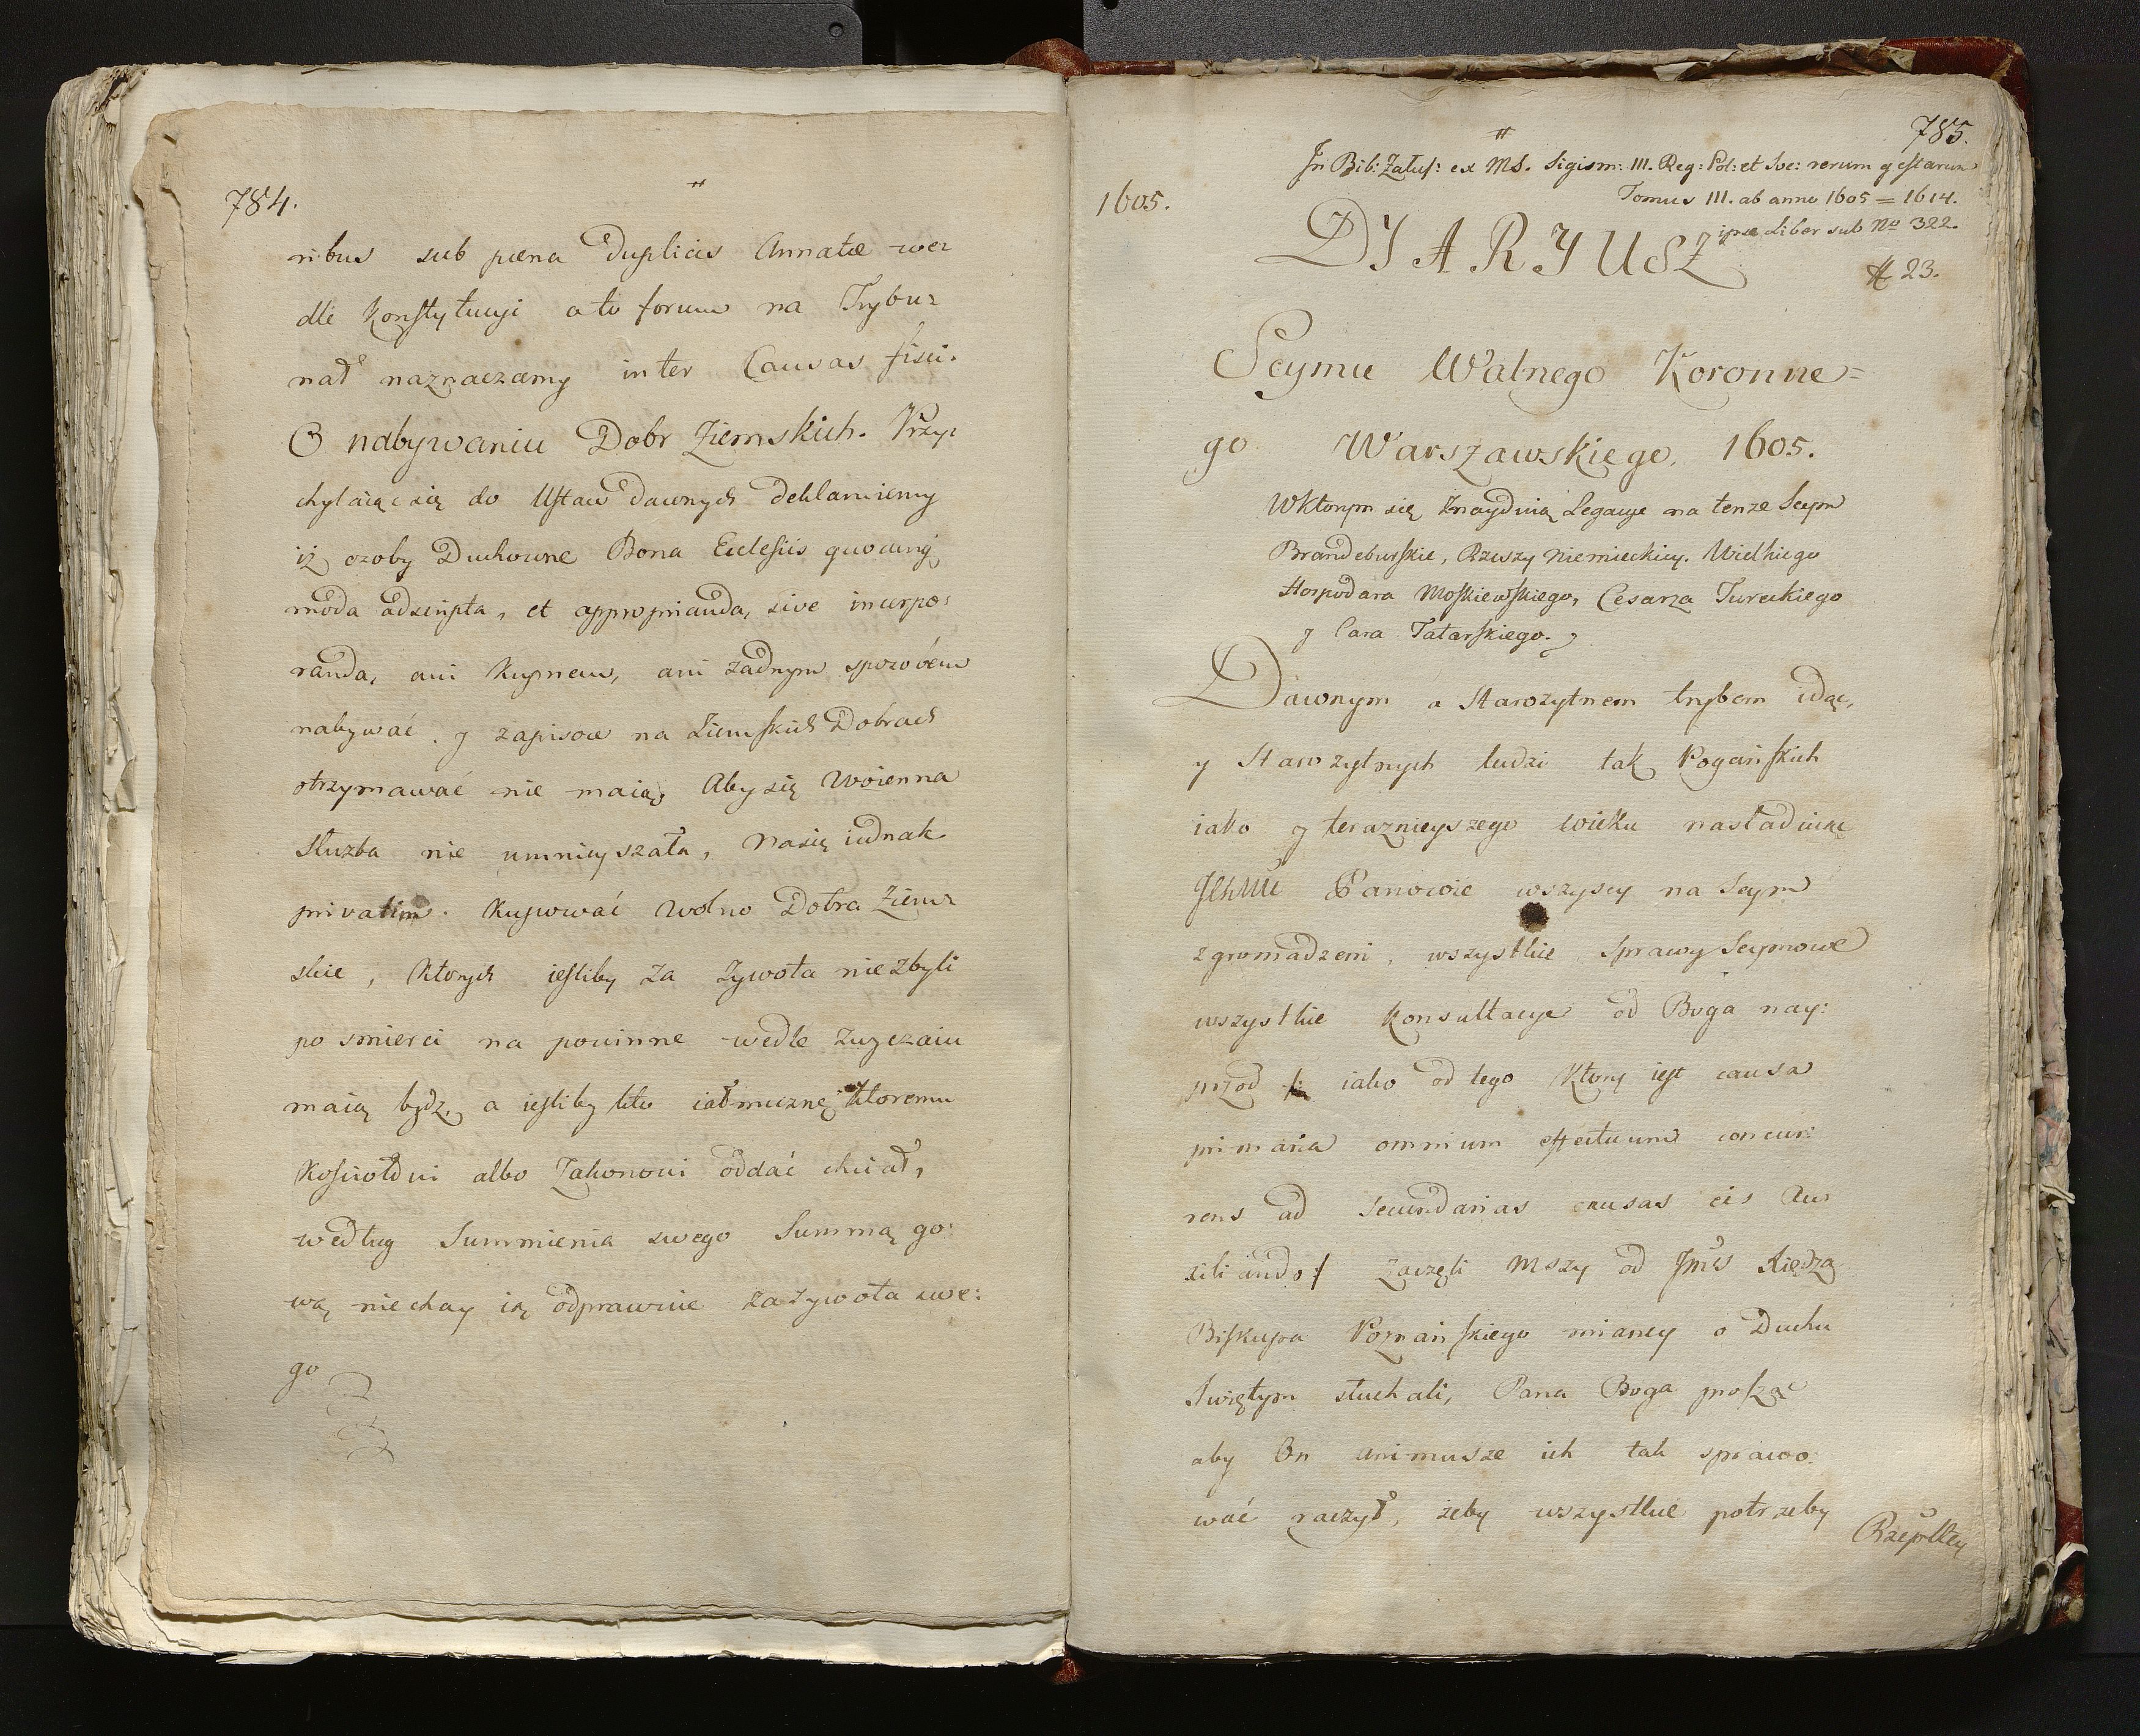 784.
ribus sub pœna Duplicis Annatæ we=
dle Konstytucyi a to forum na Trybu=
nał naznaczamy inter Causas fisci.
O nabywaniu Dobr Ziemskich. Przy=
chylaiąc się do Ustaw Dawnych deklaruiemy
iż ozoby Duchowne Bona Eclesiis quocunq
modo adscripta, et approprianda, sive incorpo=
randa, ani Kupnem, ani żadnym sposobem
nabywać y zapisow na Ziemskich Dobrach
otrzymawać nie maią, Aby się Woienna
Służba nie umnieyszała, Masię iednak
privatim Kupować wolno Dobra Ziem=
skie, Ktorych iesliby za żywota nie zbyli
po smierci na powinne wedle zwyczaiu
maią bydź, a iesliby kto iałmużnę Ktoremu
Kościołowi albo Zakonowi oddać chciał,
według Summienia swego Summą go=
wą niechay ią odprawuie za żywota swe=
go
785.
In Bib: Załus: ex MS. Sigism: III. Reg: Pol: et Sve: rerum gestarum
Tomus III. ab anno 1605 = 1614.
ipse Liber sub No 322.
1605.
DYARYUSZ
23.
Seymu Walnego Koronne=
go Warszawskiego, 1605.
W Ktorym się Znayduią Legacye na tenze Seym
Brandeburskie, Rzeszy Niemieckiey. Wielkiego
Hospodara Moskiewskiego, Cesarza Tureckiego
y Cara Tatarskiego.
Dawnym a Starozytnem trybem idąc,
y Starozytnych ludzi tak Pogańskich
iako y teraznieyszego wieku nasladuiąc
Ichmć Panowie wszyscy na Seym
zgromadzeni, wszystkie Sprawy Seymowe
wszystkie Konsultacye od Boga nay=
przod /: iako od tego Ktory iest causa
primaria omnium effectuum concur=
rens ad secundarias causas eis Au=
xiliando:/ zaczęli Mszy od Jmć Xiędza
Biskupa Poznańskiego mianey o Duchu
Swiętym słuchali, Pana Boga prosząc
aby On animusze ich tak sprawo=
wać raczył, żeby wszystkie potrzeby
Rzepltey